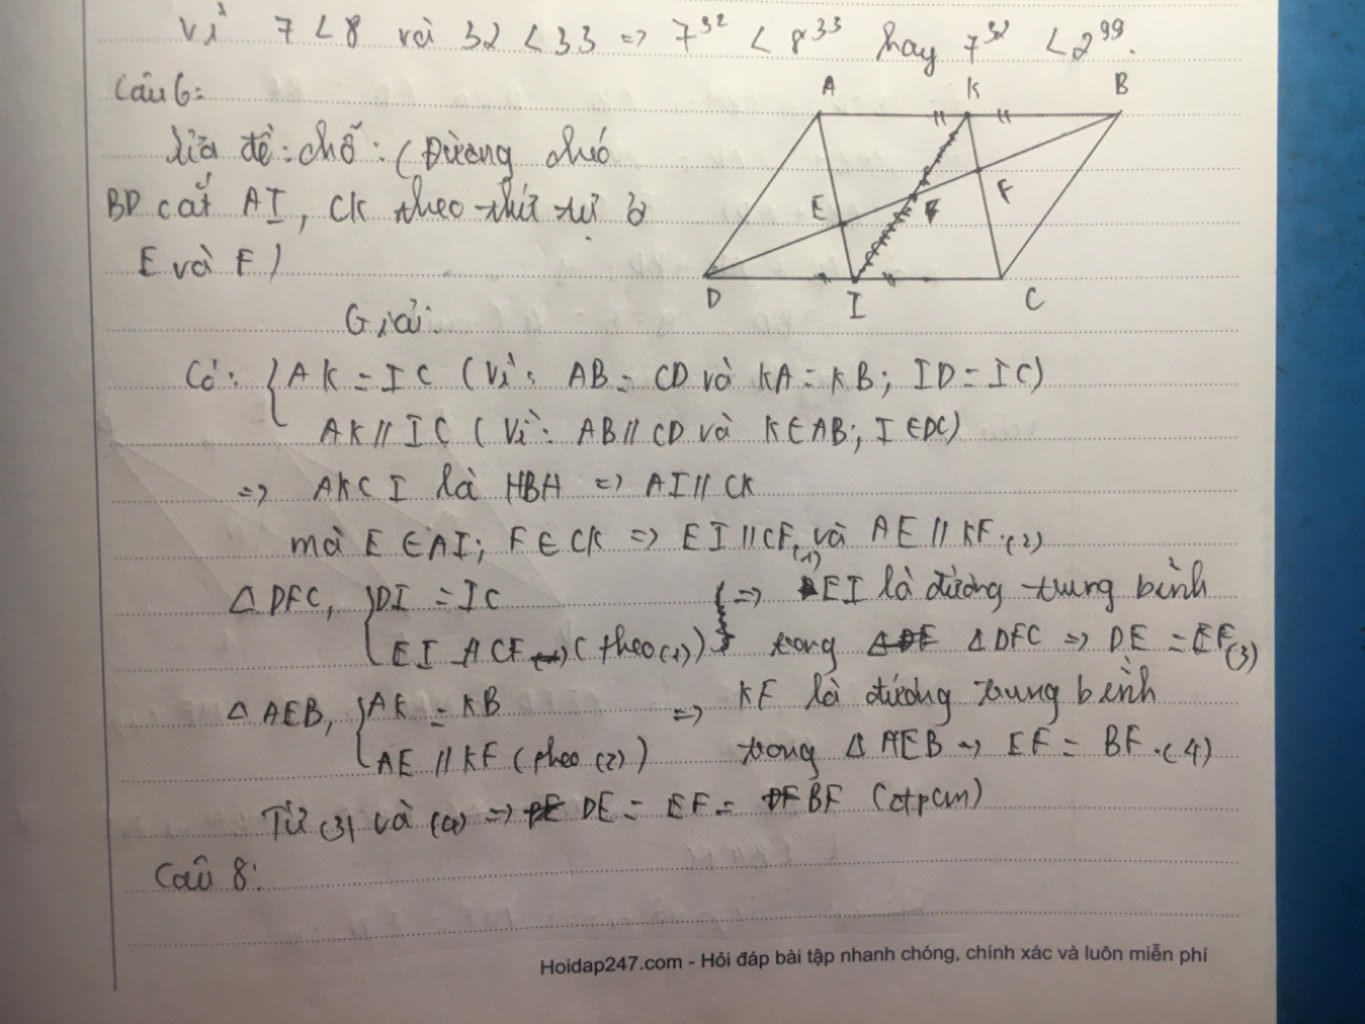 Vì 7 < 8 và 32 < 33 => 7^32 < 8^33 hay 7^32 < 2^99.
Câu 6:
Sửa đề: chỗ: (Đường chéo
BD cắt AI, CK theo thứ tự ở
E và F)
A K B
E F
D I C
Giải:
Có: { AK = IC (Vì: AB = CD và KA = KB; ID = IC)
AK // IC (Vì: AB // CD và K ∈ AB; I ∈ DC)
=> AKCI là HBH => AI // CK
mà E ∈ AI; F ∈ CK => EI // CF (1) và AE // KF. (2)
△ DFC, { DI = IC } => EI là đường trung bình
EI // CF (theo (1)) trong △ DFC => DE = EF (3)
△ AEB, { AK = KB => KF là đường trung bình
AE // KF (theo (2)) trong △ AEB => EF = BF. (4)
Từ (3) và (4) => DE = EF = BF (đtpcm)
Câu 8:
Hoidap247.com - Hỏi đáp bài tập nhanh chóng, chính xác và luôn miễn phí